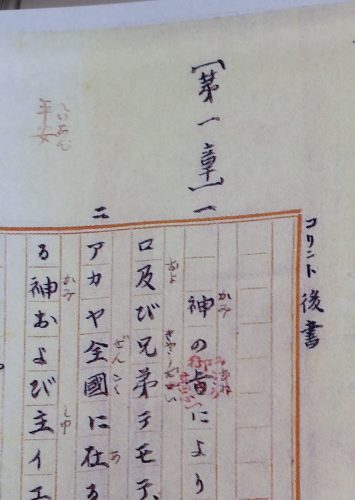 コリント後書
[第一章]一
神の御旨により
ロ及び兄弟テモテ
二
アカヤ全國に在る
る神および主イエ
平安
へいあん
かみ
およ
ぜんこく
あ
かみ
しゆ